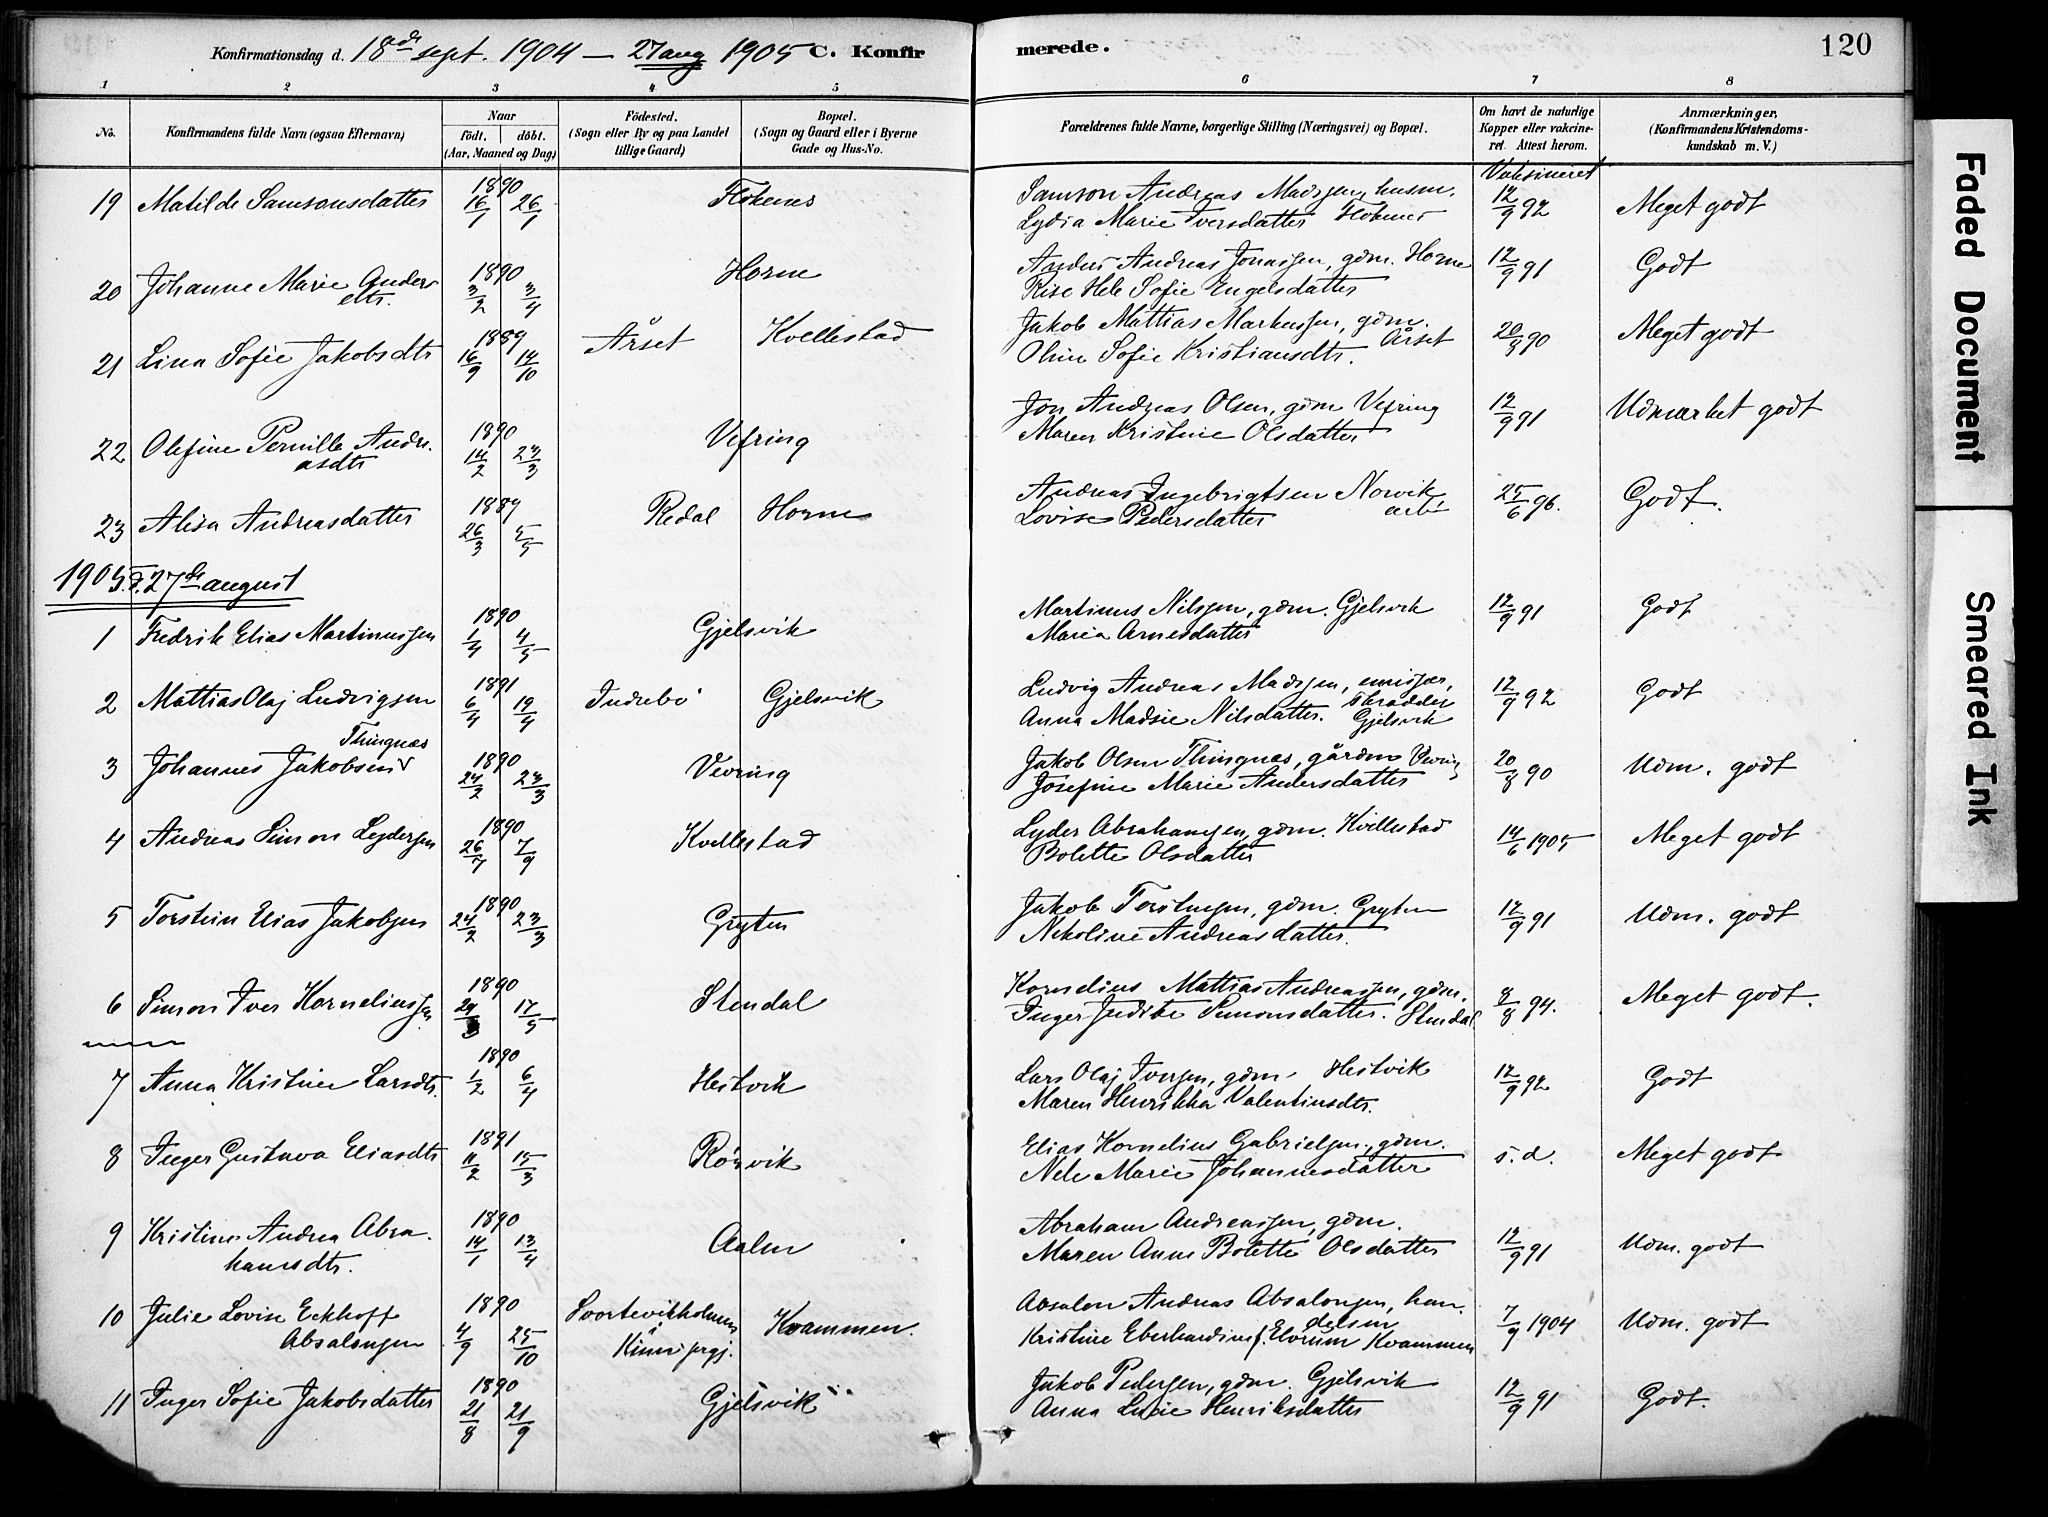 Konfirmationsdag d. 18de sept. 1904 — 27 aug 1905 C. Konfirmerede. 120
1 2 3 4 5 6 7 8
No. Konfirmandens fulde Navn (ogsaa Efternavn) Naar födt. döbt. (Aar, Maaned og Dag) Födested. (Sogn eller By og paa Landet tillige Gaard) Bopæl. (Sogn og Gaard eller i Byerne Gade og Hus-No. Forældrenes fulde Navne, borgerlige Stilling (Næringsvei) og Bopæl. Om havt de naturlige Kopper eller vakcineret. Attest herom. Anmærkninger. (Konfirmandens Kristendomskundskab m. V.)
Vaksineret
19 Matilde Samsonsdatter 1890 16/1 26/1 Flokenes Samson Andreas Madssen, husm. 12/9 92 Meget godt
Lydia Marie Iversdatter Flokenes
20 Johanne Marie Anders 1890 3/2 3/4 Horne Anders Andreas Jonassen, gdm. Horne 12/9 91 Godt
dtr. Sofie Engelsdatter
21 Lina Sofie Jakobsdtr 1889 16/9 14/10 Årset Kvellestad Jakob Mattias Markussen, gdm. Årset 20/8 90 Meget godt
Oline Sofie Kristiansdtr.
22 Olefine Pernille Andre- 1890 14/2 23/3 Vefring Jon Andreas Olsen, gdm Vefring 12/9 91 Udmærket godt
asdtr Maren Kristine Olsdatter
23 Alisa Andreasdatter 1889 26/3 5/5 Redal Horne Andreas Ingebrigtsen Norvik 25/6 96. Godt.
Lovise Pedersdatter arb.
1905. d. 27de august
1 Fredrik Elias Martinussen 1890 1/4 4/5 Gjelsvik Martinus Nilssen, gdm. Gjelsvik 12/9 91 Godt
Maria Arnesdatter
2 Mattias Olaj Ludvigsen 1891 6/4 19/4 Indrebö Gjelsvik Ludvig Andreas Madssen, emissær, 12/9 92 Godt
Skrædder
Anna Madsie Nilsdatter. Gjelsvik
3 Johannes Jakobsen Thingnæs 1890 24/2 23/3 Vevring Jakob Olsen Thingnæs, gårdm Vevring 20/8 90 Udm. godt
Josefine Marie Andersdatter
4 Andreas Simon Lydersen 1890 26/7 7/9 Kvellestad Lyder Abrahamsen, gdm. Kvellestad 14/6 1905 Meget godt
Bolette Olsdatter
5 Torstein Elias Jakobsen 1890 24/2 23/3 Gryten Jakob Torstensen, gdm. Gryten 12/9 91 Udm. godt
Nikoline Andreasdatter.
6 Simon Iver Korneliussen 1890 17/5 Stendal Kornelius Mattias Andreassen, gdm. 8/8 94. Meget godt.
Inger Simonsdatter. Stendal
7 Anna Kristine Larsdtr. 1890 1/2 6/4 Hestvik Lars Olaj Iversen, gdm. Hestvik 12/9 92 Godt
Maren Henrikka Valentinsdtr.
8 Inger Gustava Eliasdtr 1891 11/2 15/3 Rörvik Elias Kornelius Gabrielsen, gdm. s. d. Meget godt
Nele Marie Johannesdatter
9 Kristine Andrea Abra- 1890 14/1 13/4 Aalen Abraham Andreassen, gdm. 12/9 91 Udm. godt
hamsdtr. Maren Anne Bolette Olsdatter
10 Julie Lovise Eckhoff 1890 4/9 25/10 Svortevikholmen Kvammen. Absalon Andreas Absalonsen, han- 7/9 1904 Udm. godt
Absalonsen Kinn prgj. delsm
Kristine Eberhardine f. Kvammen
11 Inger Sofie Jakobsdatter 1890 21/8 21/9 Gjelsvik Jakob Pedersen, gdm. Gjelsvik 12/9 91 Godt.
Anna Lucie Henriksdatter
Faded Document
Smeared Ink